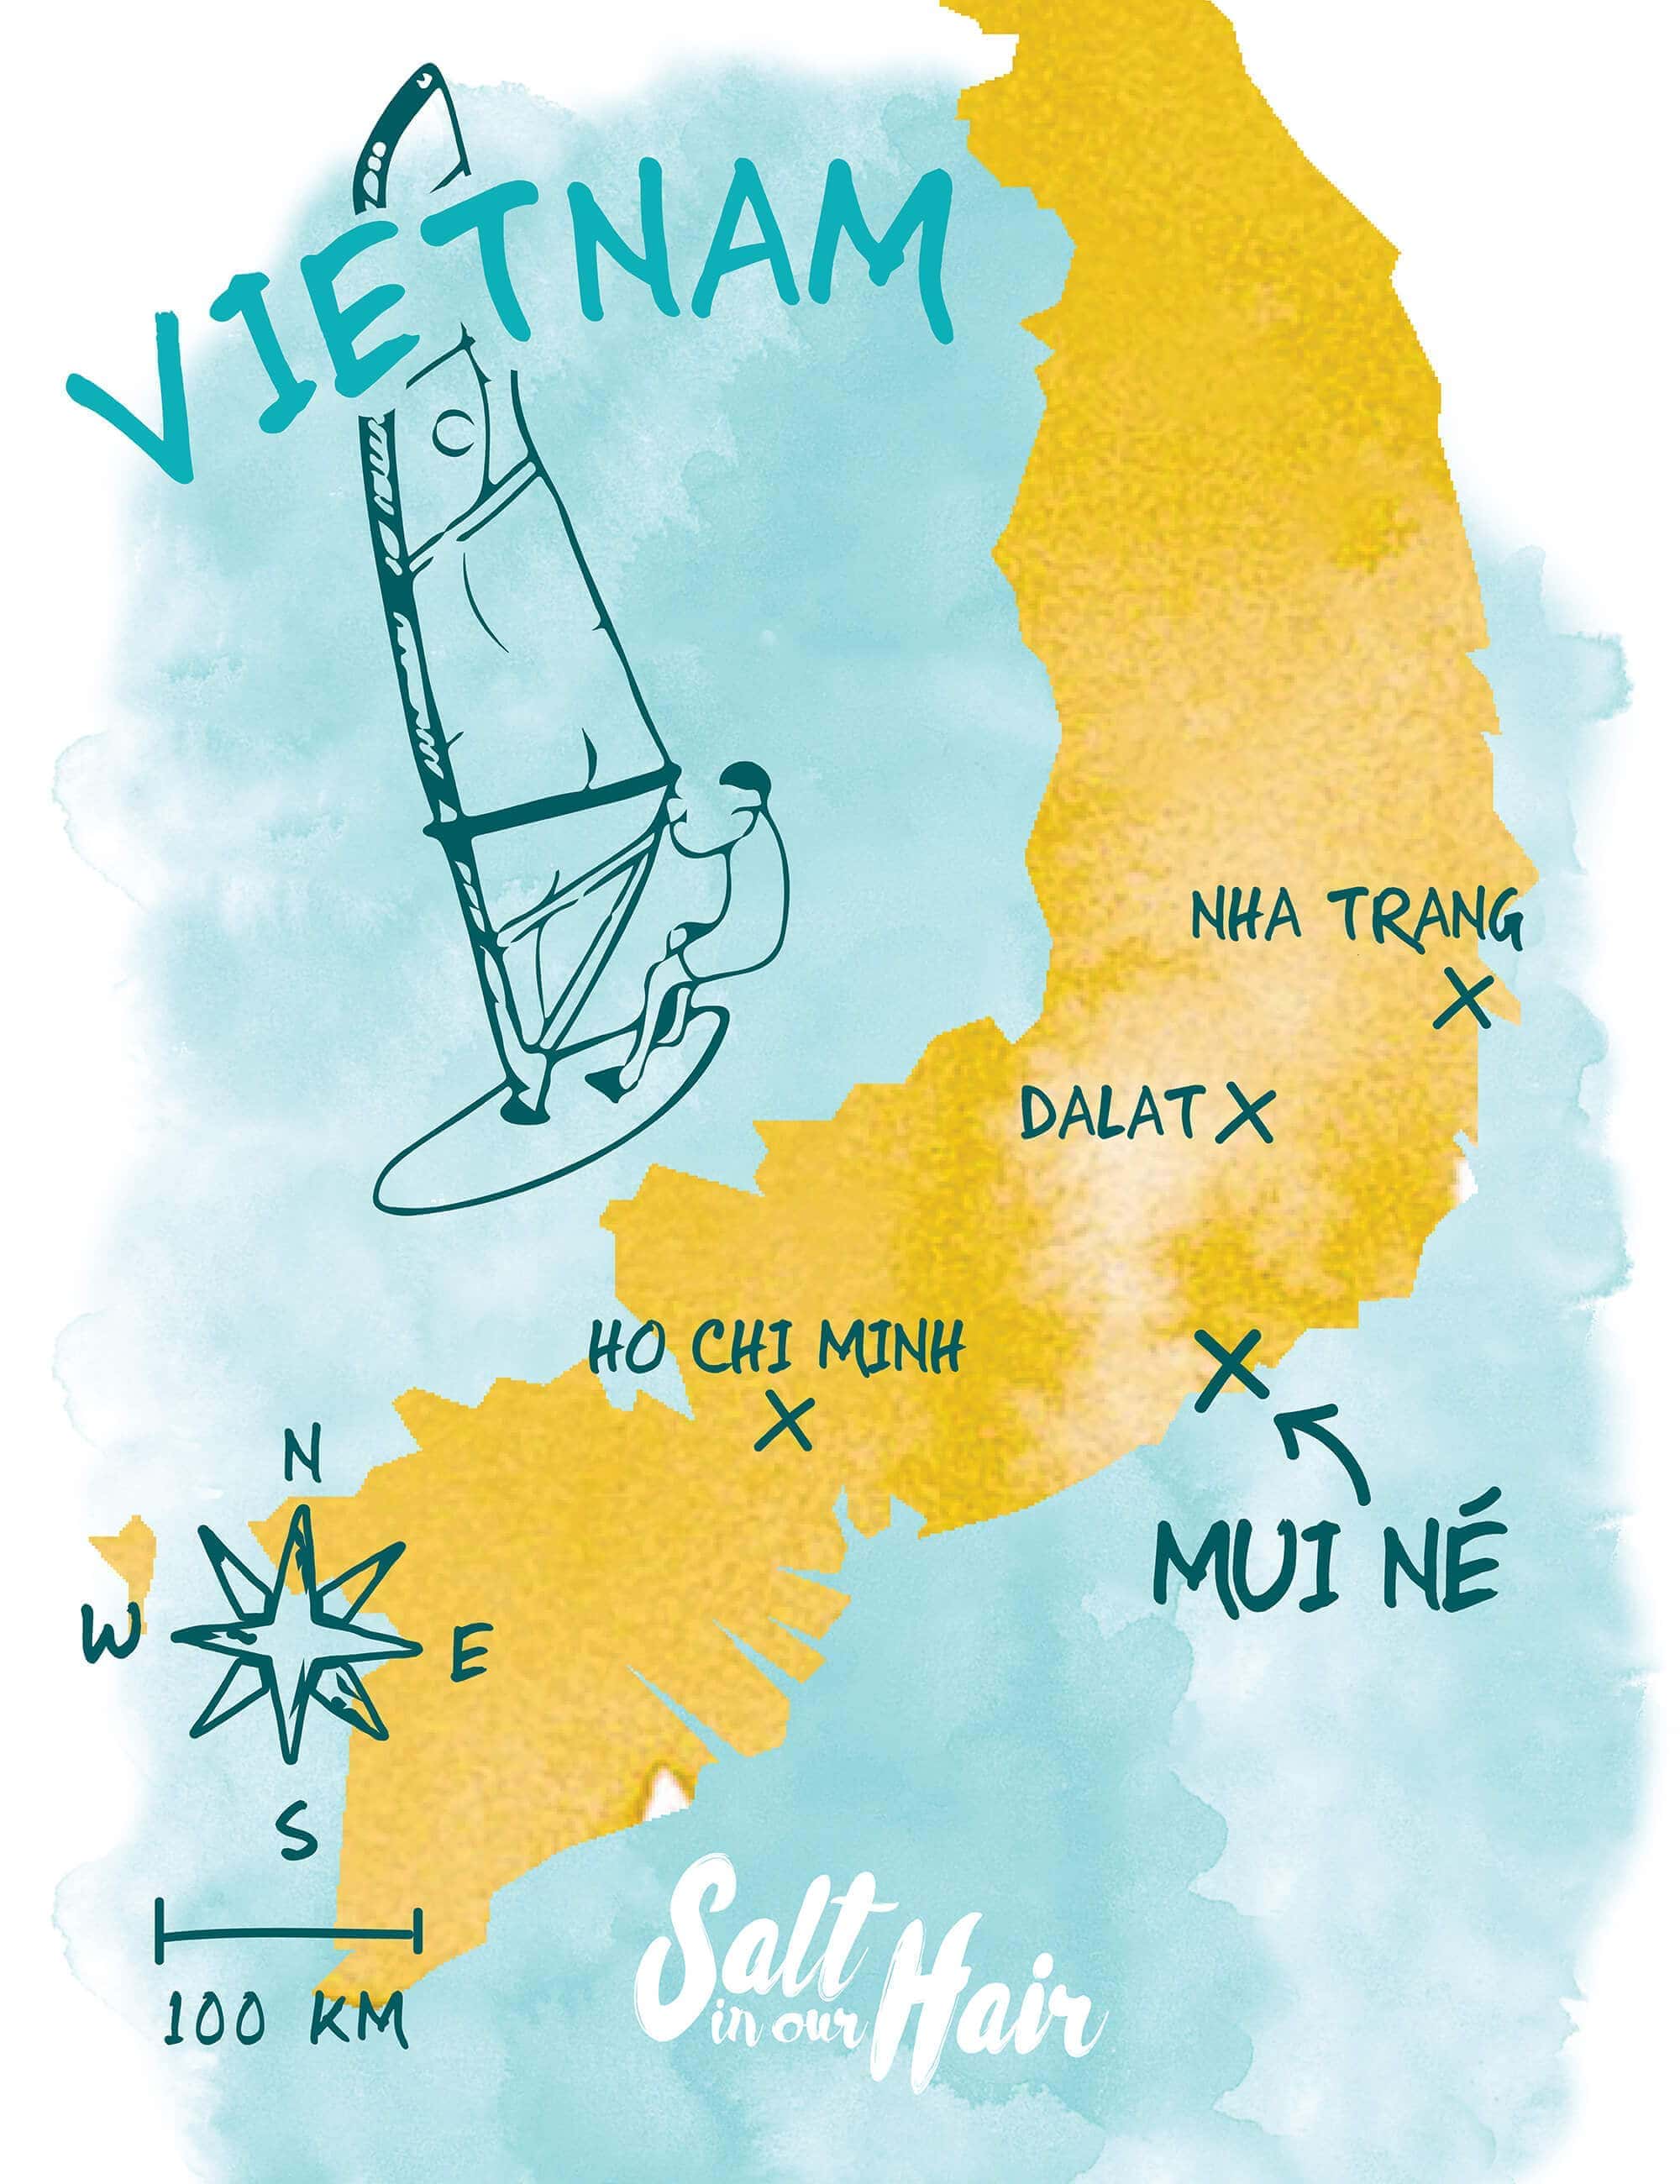 VIETNAM
NHA TRANG
DALAT
HO CHI MINH
MUI NÉ
N
W
E
S
100 KM
Salt
in our Hair